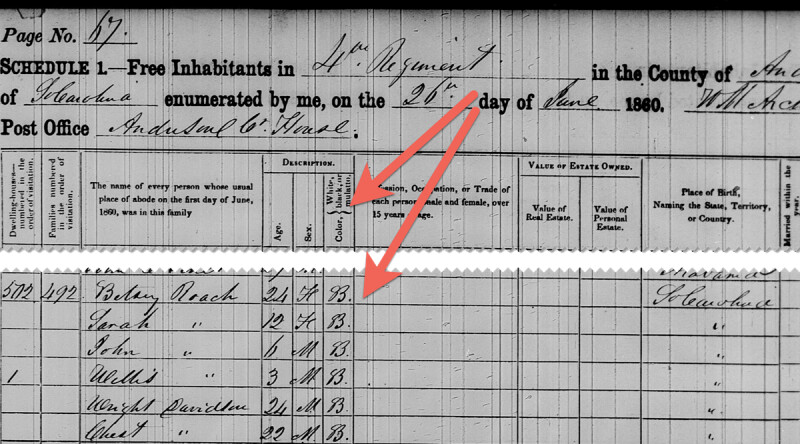 Page No. 67.
SCHEDULE 1.—Free Inhabitants in 4th Regiment in the County of And
of So Carolina enumerated by me, on the 26th day of June 1860. W M
Post Office Anderson Ct House.
Dwelling-houses— numbered in the order of visitation.
Families numbered in the order of visitation.
The name of every person whose usual place of abode on the first day of June, 1860, was in this family
DESCRIPTION.
Age.
Sex.
Color, White, black, or mulatto.
ession, Occupation, or Trade of each person, male and female, over 15 years age.
VALUE OF ESTATE OWNED.
Value of Real Estate.
Value of Personal Estate.
Place of Birth, Naming the State, Territory, or Country.
Married within the year.
502 492 Betsey Roach 24 F B. So Carolina
Sarah " 12 F B. "
John " 6 M B. "
1 Willis " 3 M B. "
Wright Davidson 24 M B. "
" 22 M B. "